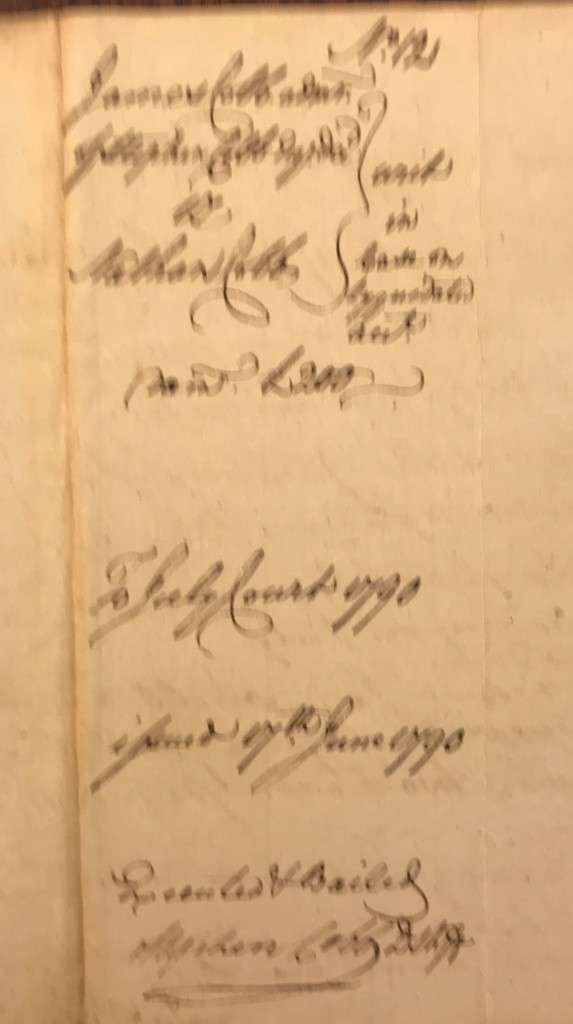 No. 12
James Cobb admr.
of Stephen Cobb decd.
vs.
Nathan Cobb
writ
in
Case on
acct
£200
To July Court 1790
issued 17th June 1790
Executed & Bailed
Stephen Cobb